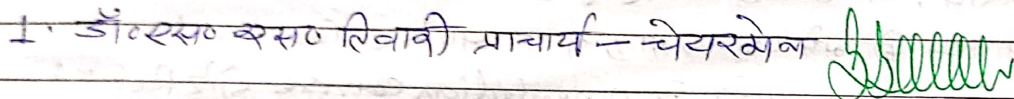 1. डॉ० एस० एस० तिवारी प्राचार्य – चेयरमेन